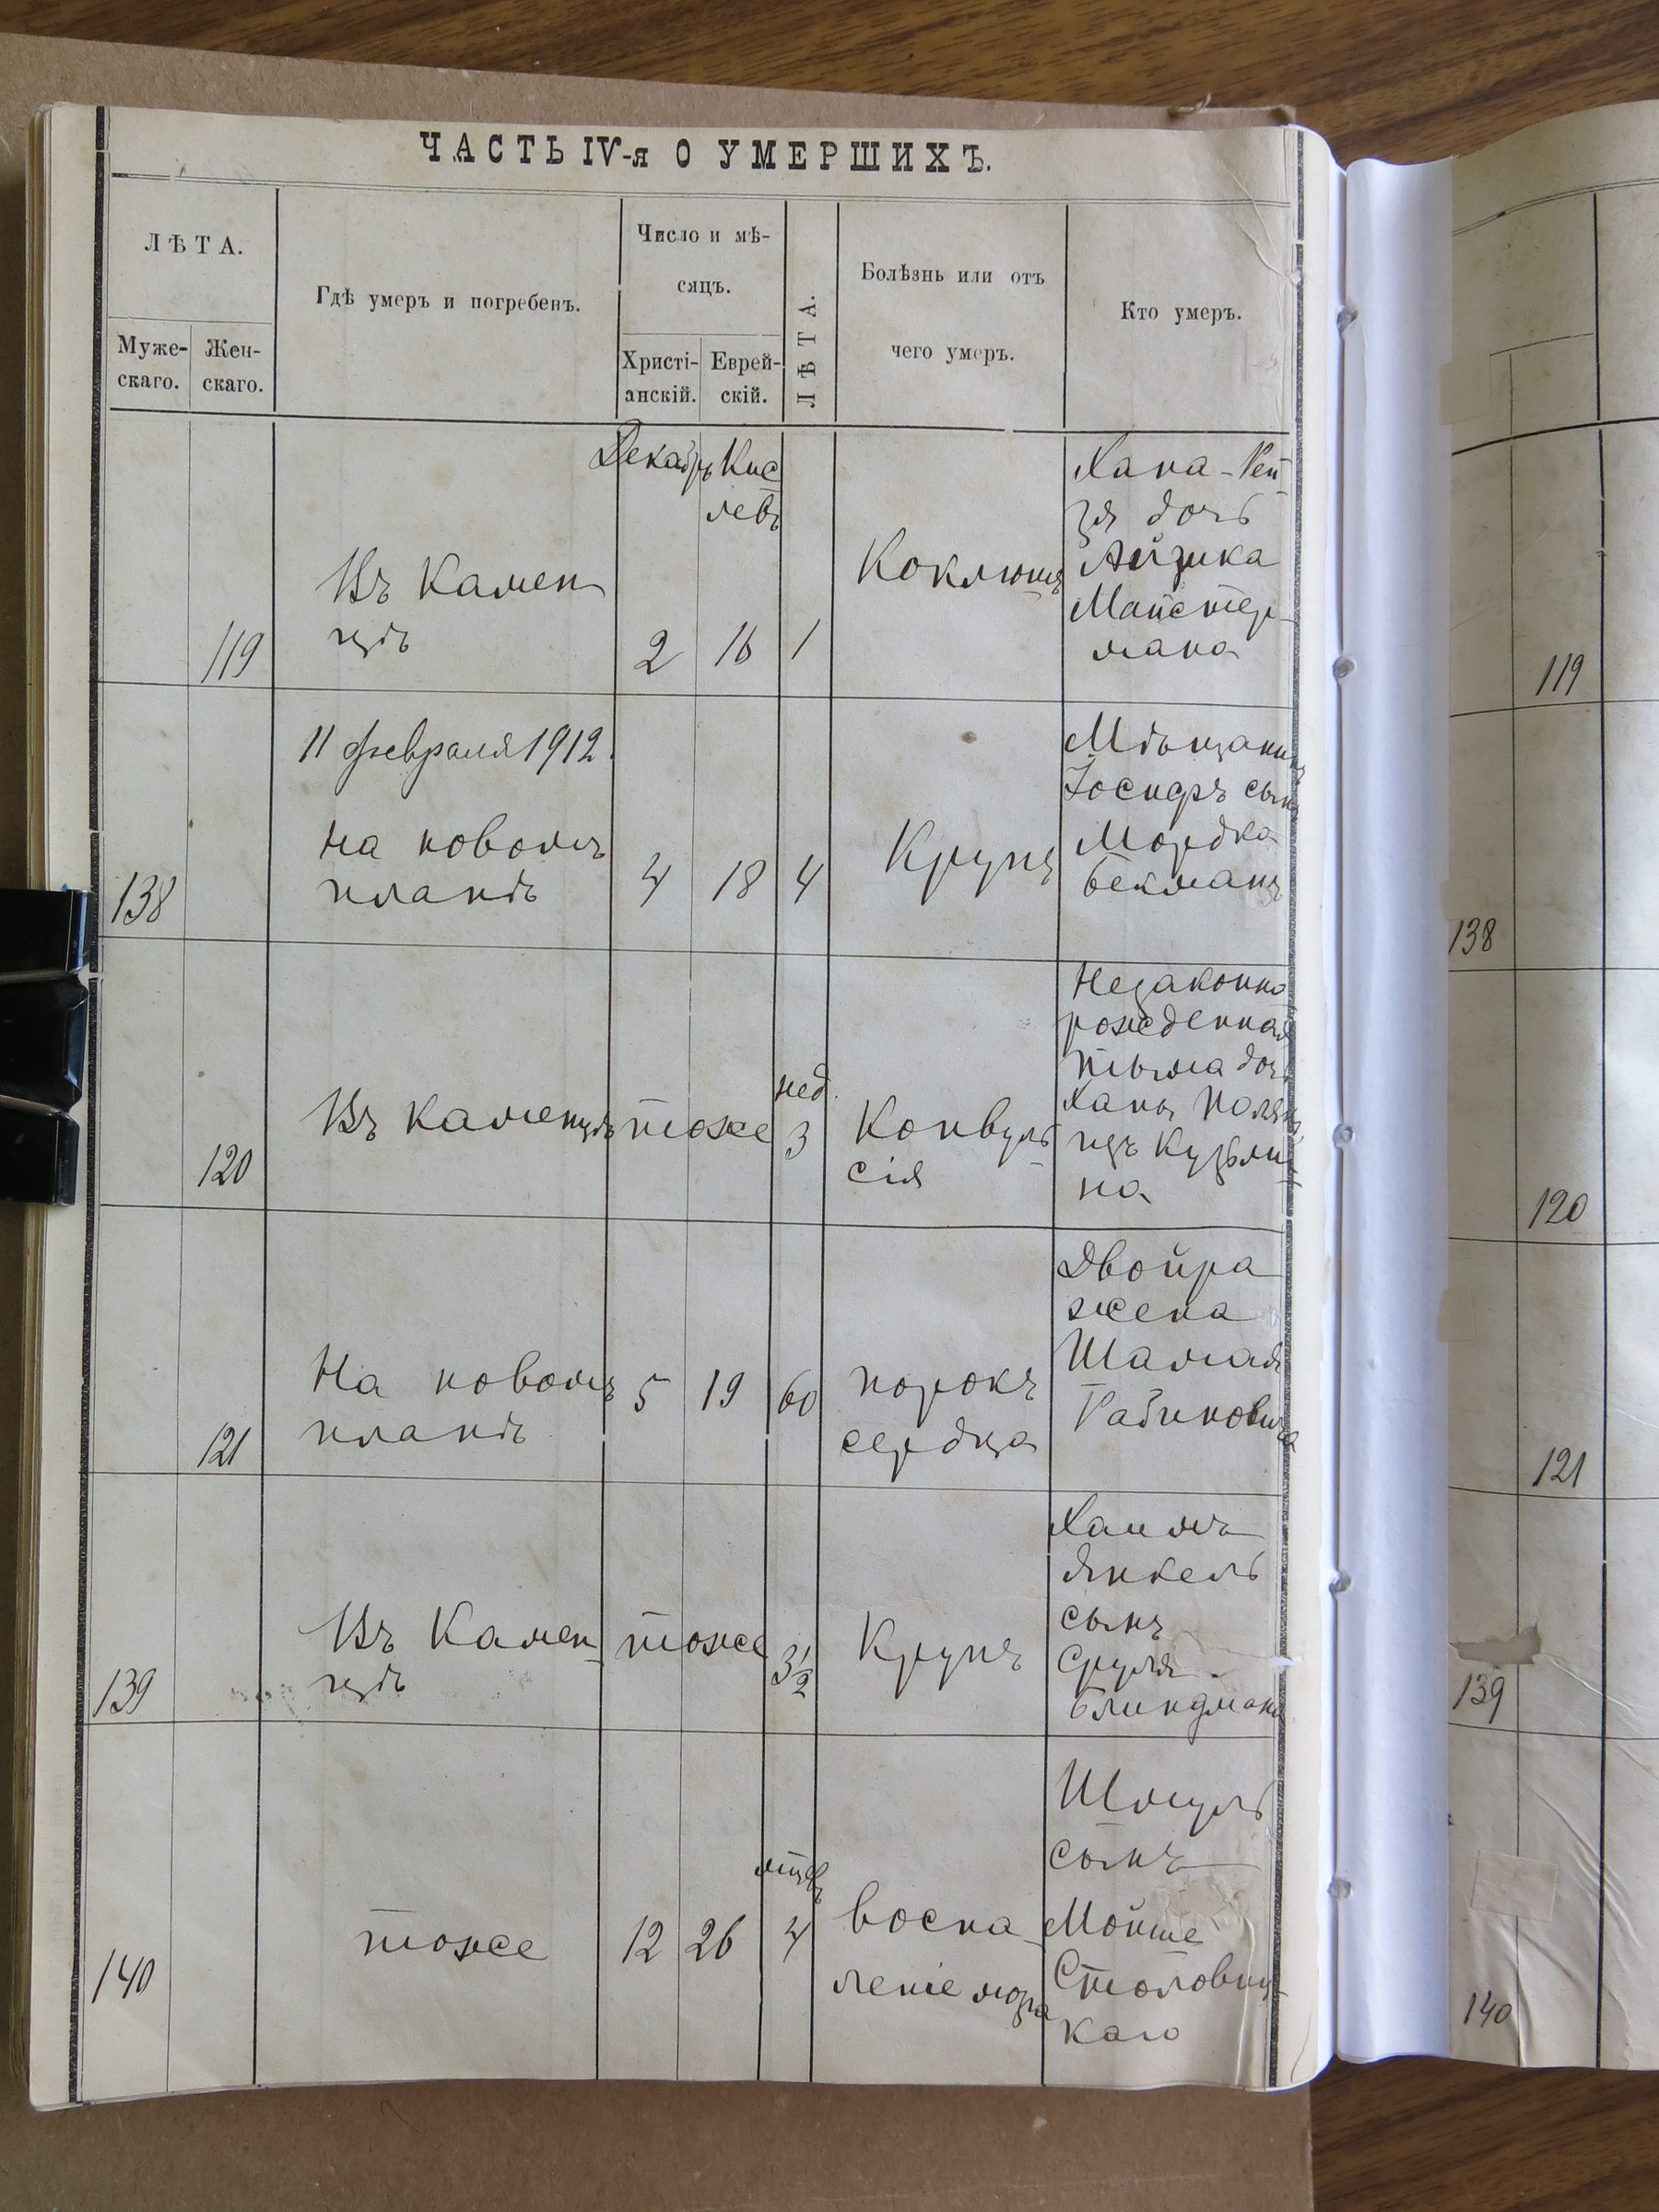 ЧАСТЬ IV-я О УМЕРШИХЪ.
ЛѢТА.
Муже-
скаго.
Жен-
скаго.
Гдѣ умеръ и погребенъ.
Число и мѣ-
сяцъ.
Христі-
анскій.
Еврей-
скій.
ЛѢТА.
Болѣзнь или отъ
чего умеръ.
Кто умеръ.
Декабрь Кис
левъ
119
Въ Камен
цѣ
2
16
1
Коклюшъ
Хана-Рей
зя дочь
Айзика
Майстер-
мана
119
11 февраля 1912.
138
На новомъ
планѣ
4
18
4
Крупъ
Мѣщанинъ
Іосифъ сынъ
Мордка
Бекманъ
138
120
Въ Каменцѣ
тоже
нед.
3
Конвуль
сія
Незаконно
рожденная
дочь
Ханы
изъ Кузьми
на
120
121
На новомъ
планѣ
5
19
60
порокъ
сердца
Двойра
жена
Шамая
Рабиновича
121
139
Въ Камен
цѣ
тоже
3½
Крупъ
Хаимъ
Янкель
сынъ
Сруля
Блиндмана
139
140
тоже
12
26
4
воспа
леніе мозга
Шмуль
сынъ
Мойше
Столовиц-
каго
140